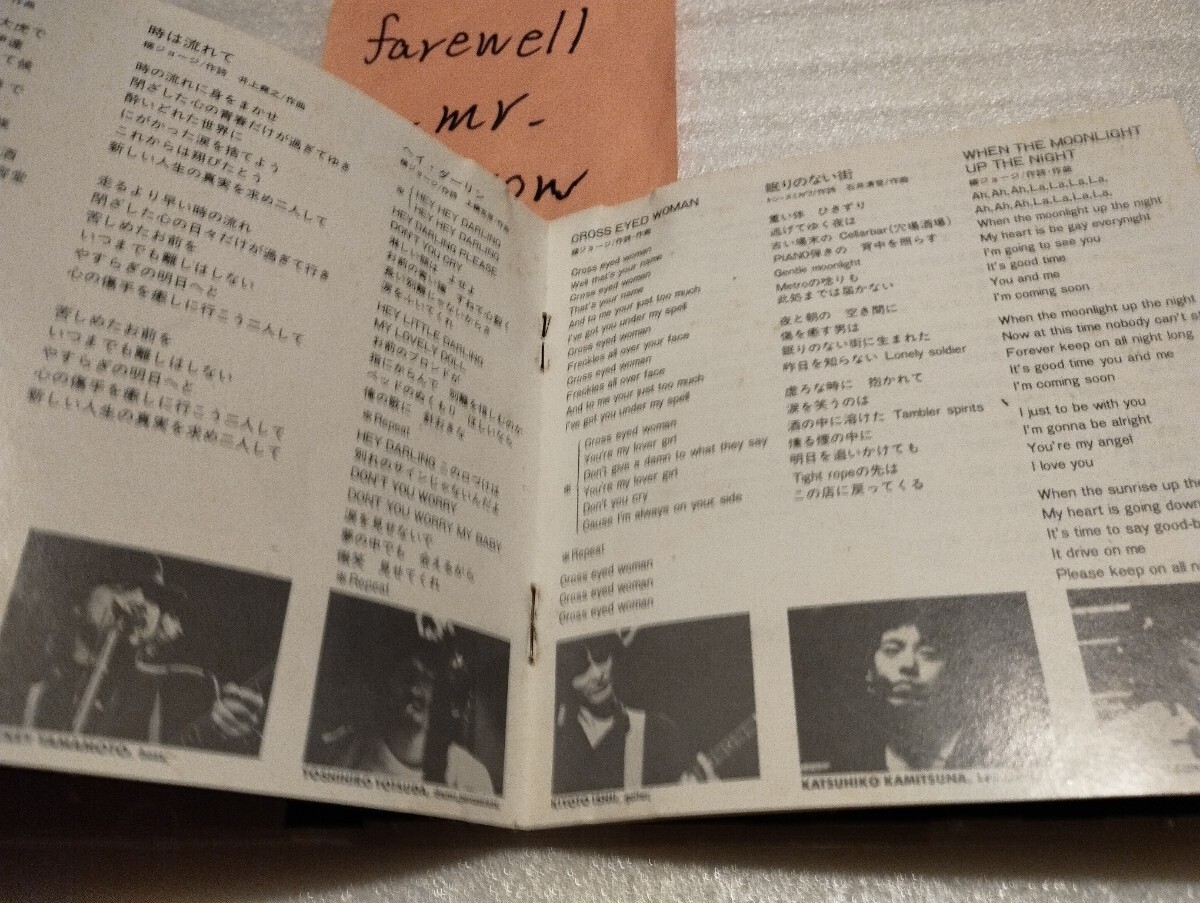 farewell
-mr-
時は流れて
時の流れに身をまかせ
閉ざした心の青春だけが過ぎてゆき
酔いどれた世界に
にがかった涙を捨てよう
これからは翔びたとう
新しい人生の真実を求め二人して
走るより早い時の流れ
閉ざした心の日々だけが過ぎて行き
苦しめたお前を
いつまでも離しはしない
やすらぎの明日へと
心の傷手を癒しに行こう二人して
苦しめたお前を
いつまでも離しはしない
やすらぎの明日へと
心の傷手を癒しに行こう二人して
新しい人生の真実を求め二人して
ヘイ・ダーリン
※ HEY HEY DARLING
HEY HEY DARLING
HEY DARLING PLEASE
DON'T YOU CRY
淋しい顔は よせよ
お前の青い瞳 すねて心裂く
長い別離じゃないからさ
涙をふいてくれ
HEY LITTLE DARLING
MY LOVELY DOLL
お前のブロンドが
指にからんで 別離を惜しむのか
ベッドのぬくもり ほしいなら
俺の歌に 針おきな
※Repeat
HEY DARLING この口づけは
別れのサインじゃないんだよ
DON'T YOU WORRY
DON'T YOU WORRY MY BABY
涙を見せないで
夢の中でも 会えるから
微笑 見せてくれ
※Repeat
YOSHIHIRO
GROSS EYED WOMAN
Gross eyed woman
Well that's your name
Gross eyed woman
That's your name
And to me your just too much
I've got you under my spell
Gross eyed woman
Freckles all over your face
Gross eyed woman
Freckles all over face
And to me your just too much
I've got you under my spell
Gross eyed woman
You're my lover girl
Don't give a damn to what they say
※ You're my lover girl
Don't you cry
Cause I'm always on your side
※Repeat
Gross eyed woman
Gross eyed woman
Gross eyed woman
眠りのない街
重い体 ひきずり
逃げてゆく夜は
古い場末の Cellarbar(穴場酒場)
PIANO弾きの 背中を照らす
Gentle moonlight
Metroの唸りも
此処までは届かない
夜と朝の 空き間に
傷を癒す男は
眠りのない街に生まれた
昨日を知らない Lonely soldier
虚ろな時に 抱かれて
涙を笑うのは
酒の中に溶けた Tambler spirits
燻る煙の中に
明日を追いかけても
Tight ropeの先は
この店に戻ってくる
KATSUHIKO KAMITSUNA,
WHEN THE MOONLIGHT
UP THE NIGHT
Ah,Ah,Ah,La,La,La,La,
Ah,Ah,Ah,La,La,La,La,
When the moonlight up the night
My heart is be gay everynight
I'm going to see you
It's good time
You and me
I'm coming soon
When the moonlight up the night
Now at this time nobody can't
Forever keep on all night long
It's good time you and me
I'm coming soon
I just to be with you
I'm gonna be alright
You're my angel
I love you
When the sunrise up the
My heart is going down
It's time to say good-b
It drive on me
Please keep on all